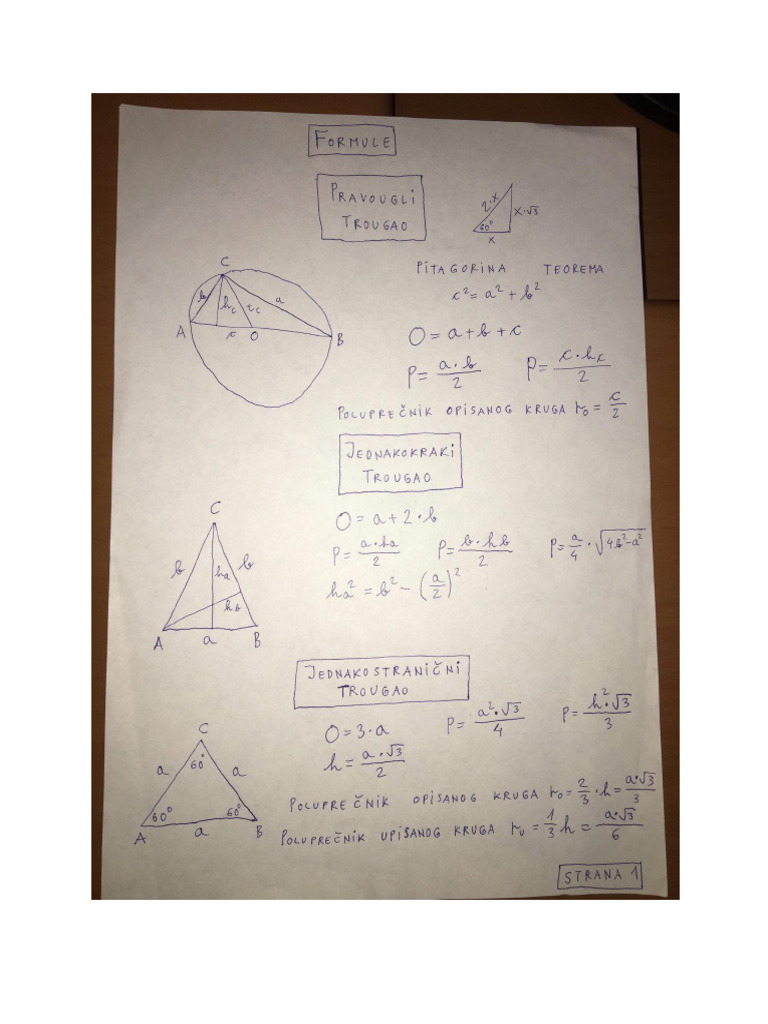 FORMULE
PRAVOUGLI
TROUGAO
2·x
x·√3
60°
x
PITAGORINA TEOREMA
c² = a² + b²
C
b
hc
tc
a
A
c
O
B
O = a + b + c
P = a·b/2
P = c·hc/2
POLUPREČNIK OPISANOG KRUGA ro = c/2
JEDNAKOKRAKI
TROUGAO
O = a + 2·b
C
b
ha
b
hb
A
a
B
P = a·ha/2
P = b·hb/2
P = a/4 · √4b²-a²
ha² = b² - (a/2)²
JEDNAKOSTRANIČNI
TROUGAO
O = 3·a
P = a²·√3/4
P = h²·√3/3
h = a·√3/2
C
60°
a
a
60°
60°
A
a
B
POLUPREČNIK OPISANOG KRUGA ro = 2/3 · h = a·√3/3
POLUPREČNIK UPISANOG KRUGA ru = 1/3 h = a·√3/6
STRANA 1